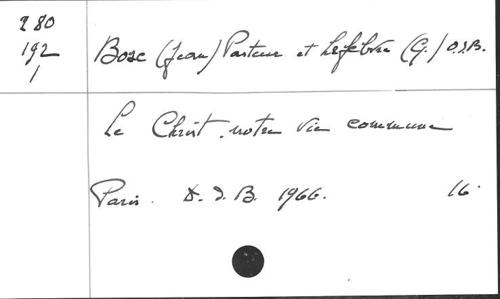 280
192
1
Bosc (Jean) Pasteur et Lefebvre (G.) O.S.B.
Le Christ, notre vie commune
Paris. D. d. B. 1966. 16.